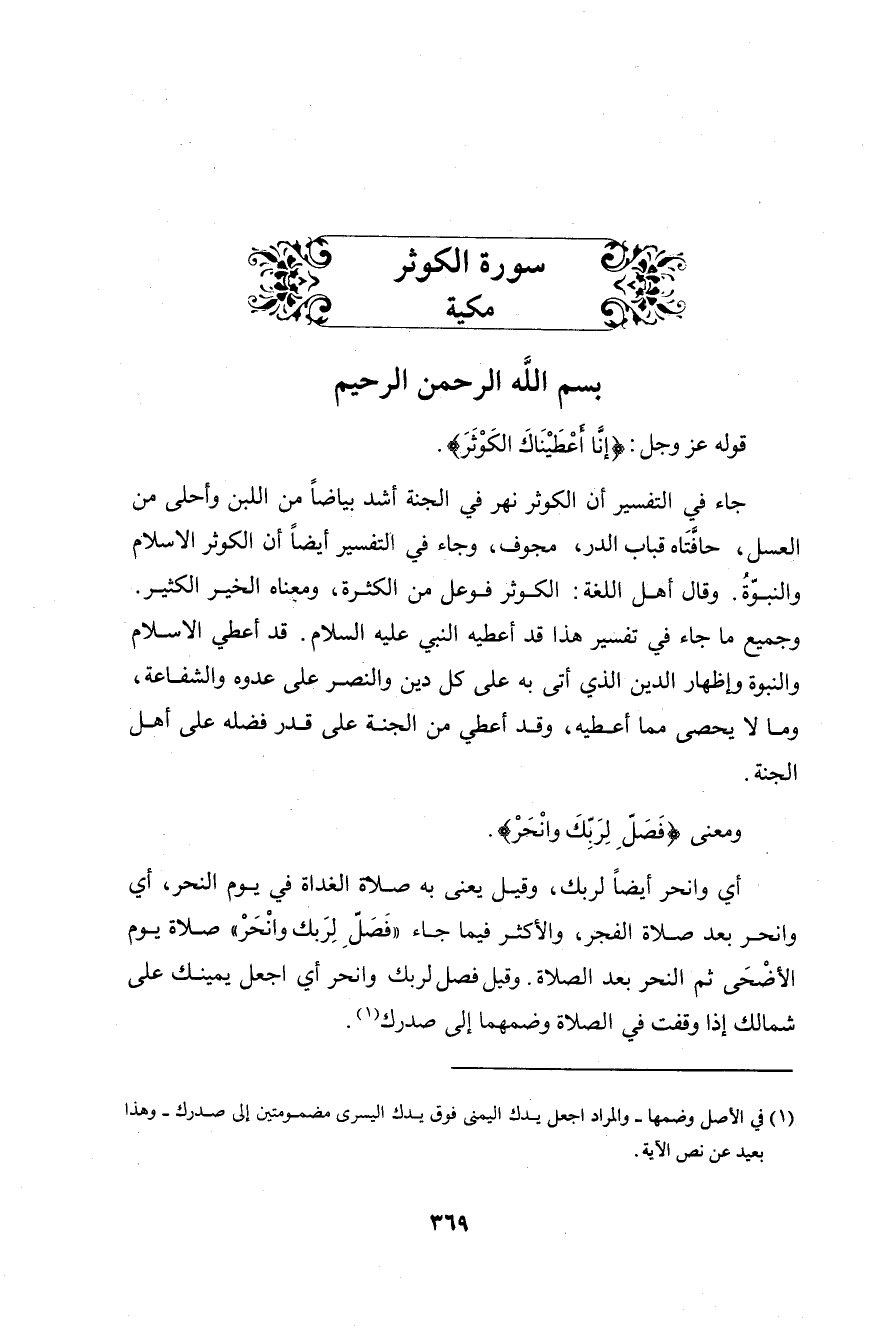 سورة الكوثر
مكية
بسم اللَّه الرحمن الرحيم
قوله عز وجل: ﴿إنَّا أَعْطَيْنَاكَ الكَوْثَرَ﴾.
جاء في التفسير أن الكوثر نهر في الجنة أشد بياضاً من اللبن وأحلى من
العسل، حافَّتَاه قباب الدر، مجوف، وجاء في التفسير أيضاً أن الكوثر الاسلام
والنبوّةُ. وقال أهل اللغة: الكوثر فوعل من الكثرة، ومعناه الخير الكثير.
وجميع ما جاء في تفسير هذا قد أعطيه النبي عليه السلام. قد أعطي الاسلام
والنبوة وإظهار الدين الذي أتى به على كل دين والنصر على عدوه والشفاعة،
وما لا يحصى مما أعطيه، وقد أعطي من الجنة على قدر فضله على أهل
الجنة.
ومعنى ﴿فَصَلِّ لِرَبِّكَ وانْحَرْ﴾.
أي وانحر أيضاً لربك، وقيل يعنى به صلاة الغداة في يوم النحر، أي
وانحر بعد صلاة الفجر، والأكثر فيما جاء «فَصَلِّ لِرَبك وانْحَرْ» صلاة يوم
الأضْحَى ثم النحر بعد الصلاة. وقيل فصل لربك وانحر أي اجعل يمينك على
شمالك إذا وقفت في الصلاة وضمهما إلى صدرك(١).
(١) في الأصل وضمها - والمراد اجعل يدك اليمنى فوق يدك اليسرى مضمومتين إلى صدرك - وهذا
بعيد عن نص الآية.
٣٦٩